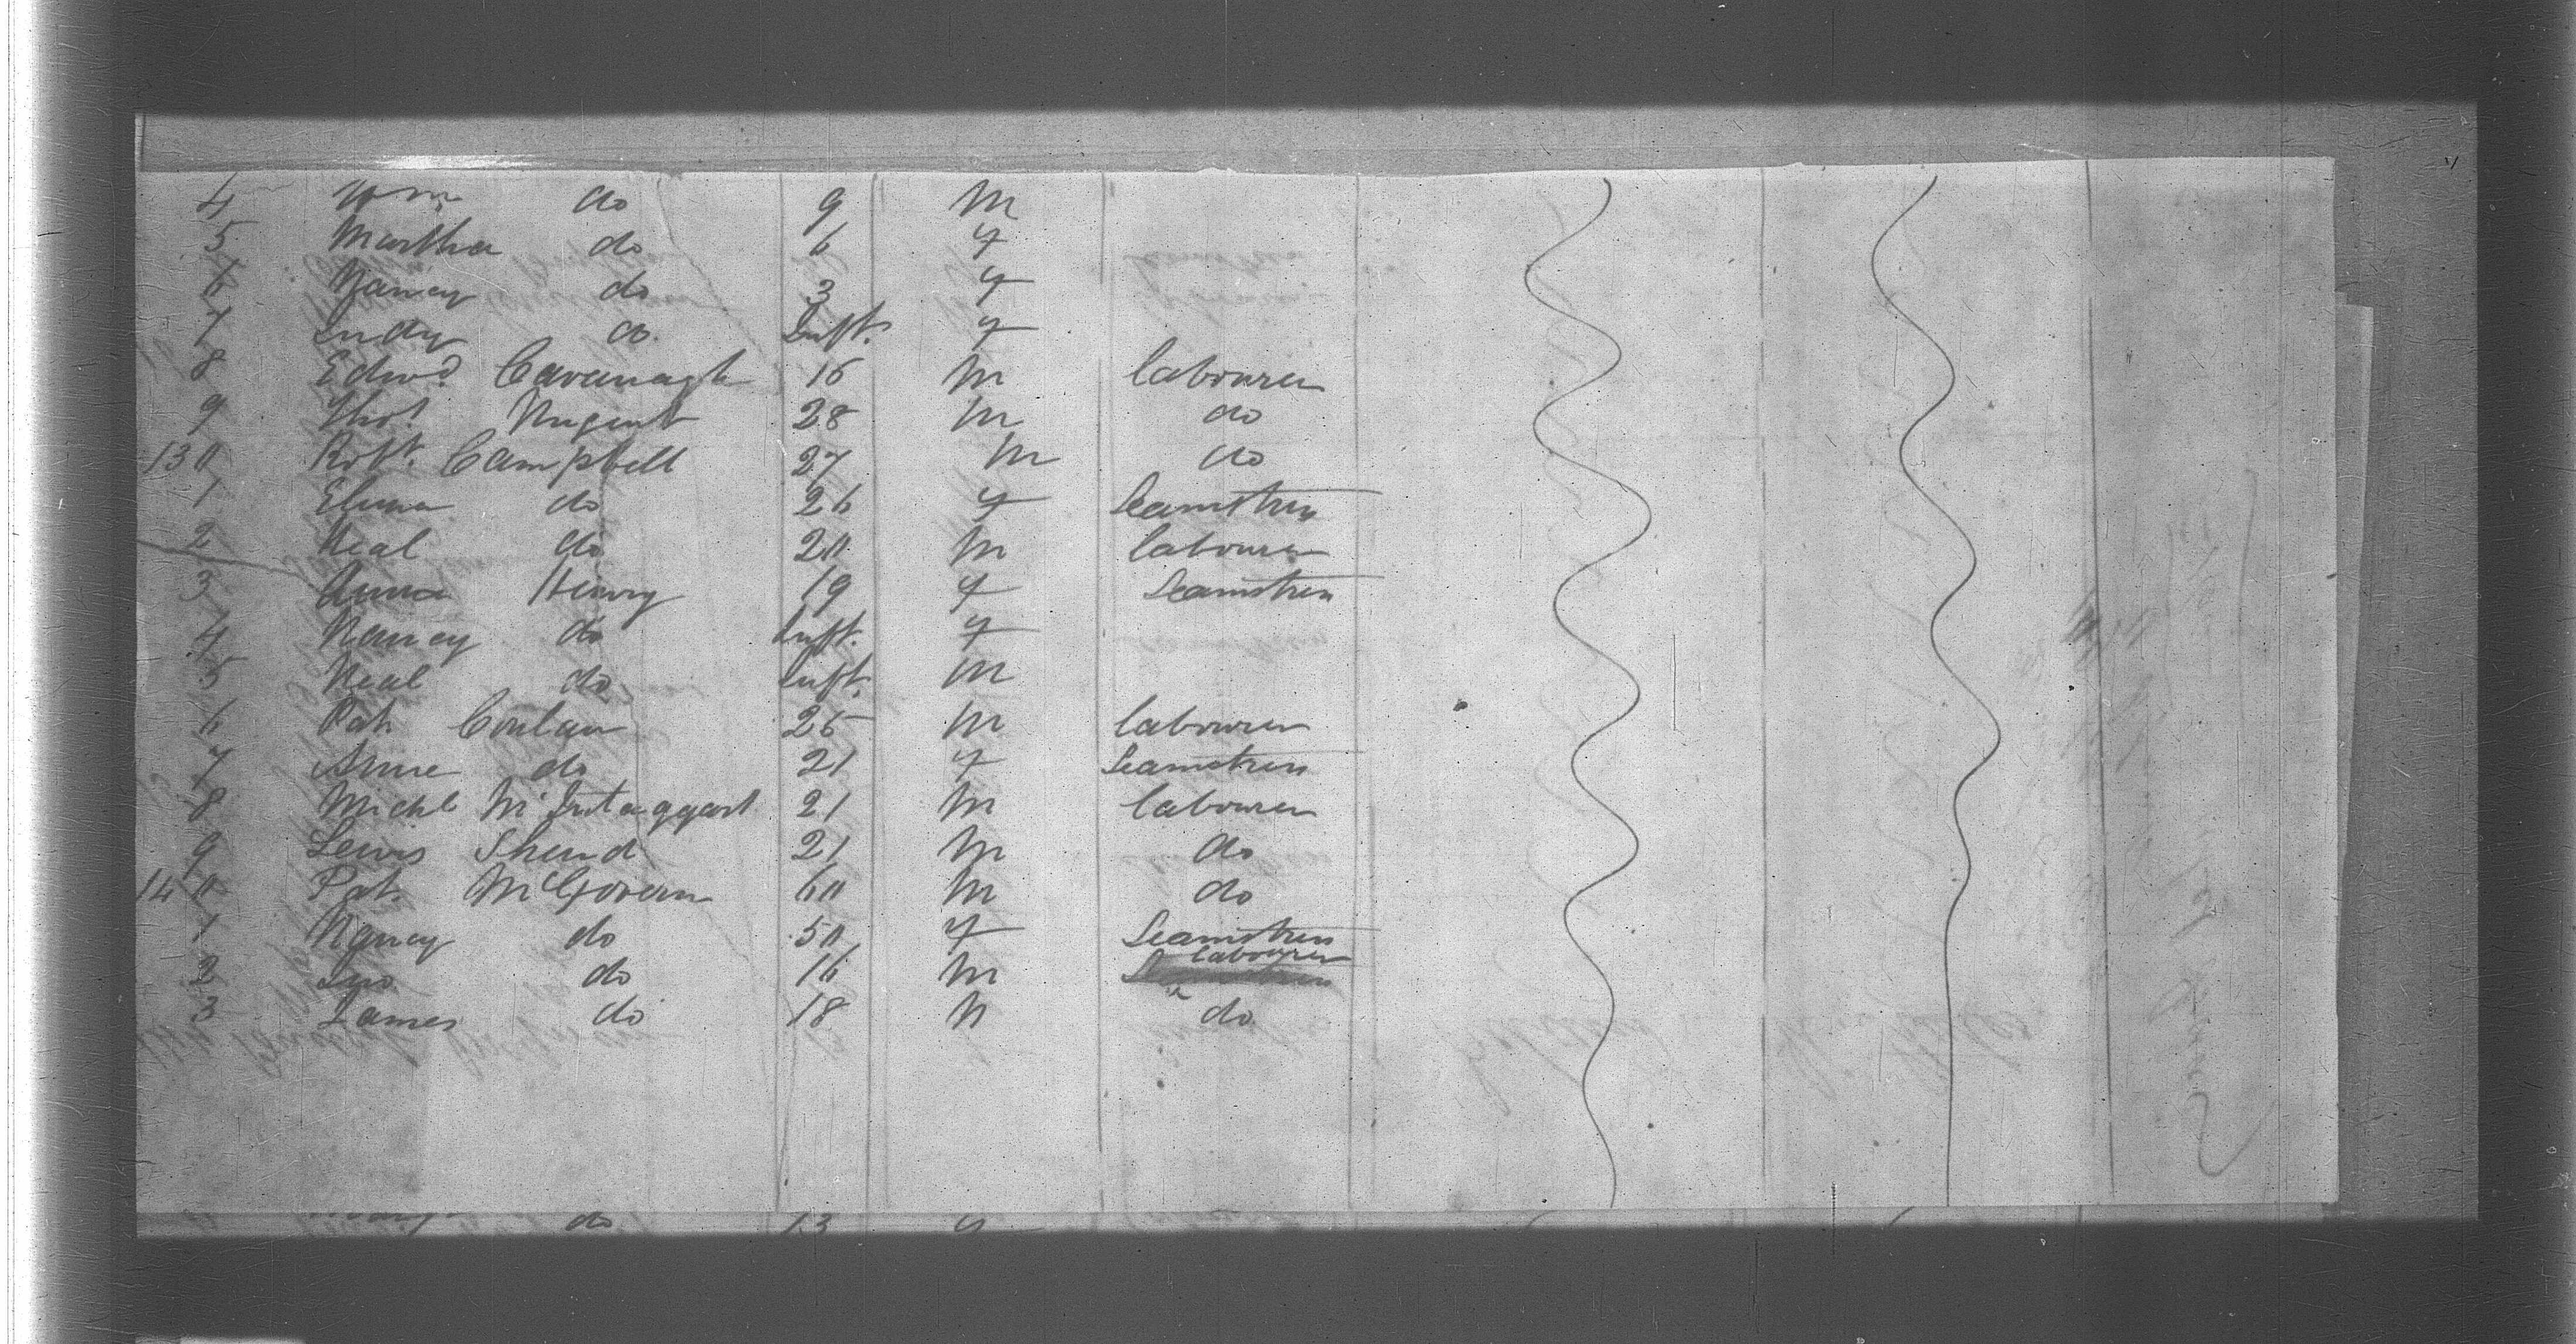 4 Wm do 9 M
5 Martha do 6 f
6 Nancy do 3 f
7 Judy do Inft. f
8 Edwd. Cavanagh 16 M labourer
9 Thos. Nugent 28 M do
130 Robt. Campbell 27 M do
1 do 26 f Seamstress
2 Neal do 20 M labourer
3 Anna Henry 19 f Seamstress
4 Nancy do Inft. f
5 Neal do Inft. M
6 Pat. Conlan 25 M labourer
7 Anne do 21 f Seamstress
8 Michl McIntaggart 21 M labourer
9 Lewis 21 M do
140 Pat. McGovern 60 M do
1 Nancy do 50 f Seamstress
2 Jno do 16 M labourer
3 James do 18 M do
do 13 f